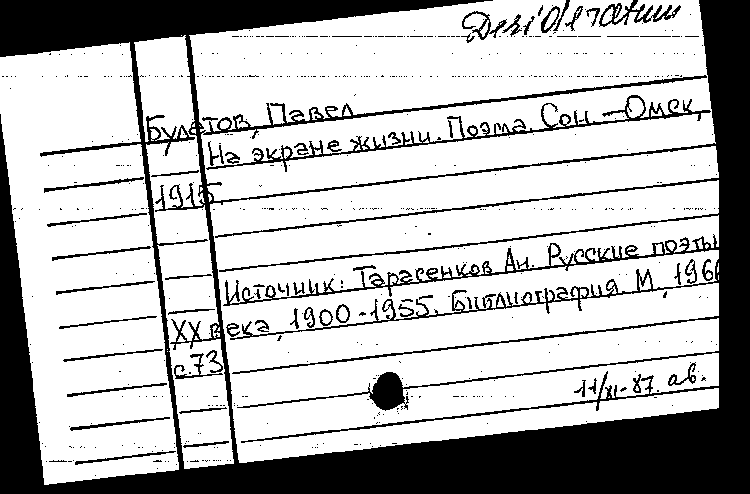 Desideratum
Булатов, Павел
На экране жизни. Поэма. Сон. — Омск,
1915.
Источник: Тарасенков Ан. Русские поэты
XX века, 1900-1955. Библиография. М., 1966
с.73
11/XI-87. ав.